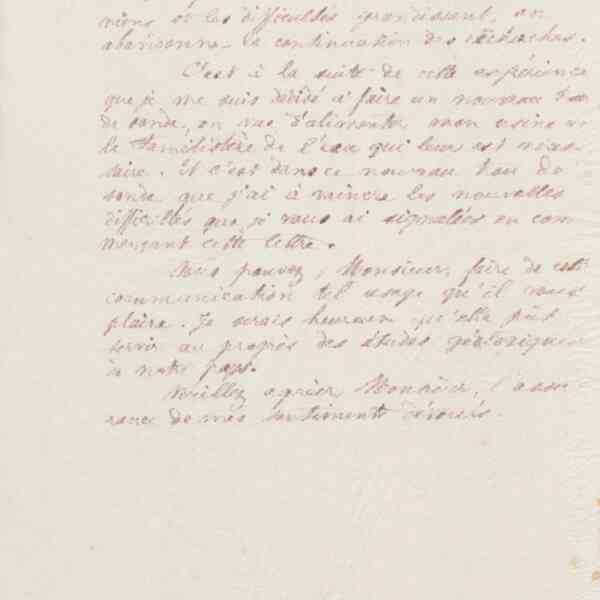 et les difficultés grandissent, on
abandonne la continuation des recherches.
C'est à la suite de cette expérience
que je me suis décidé à faire un nouveau trou
de sonde, en vue d'alimenter mon usine et
le familistère de l'eau qui leur est néces-
saire. Et c'est dans ce nouveau trou de
sonde que j'ai à vaincre les nouvelles
difficultés que je vous ai signalées en com-
mençant cette lettre.
Vous pouvez, Monsieur, faire de cette
communication tel usage qu'il vous
plaira. Je serais heureux qu'elle pût
servir au progrès des études géologiques
de notre pays.
Veuillez agréer, Monsieur, l'assu
rance de mes sentiments dévoués.